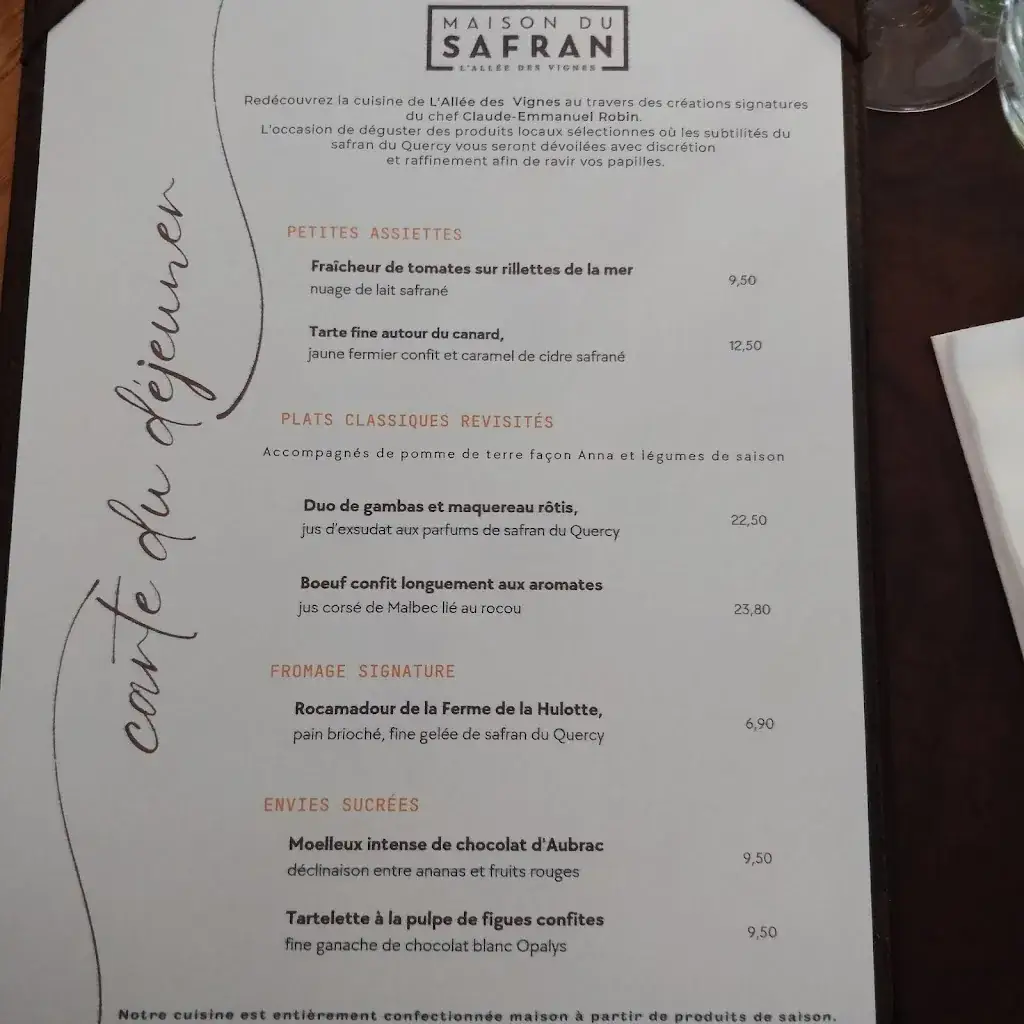 MAISON DU
SAFRAN
L'ALLÉE DES VIGNES
Redécouvrez la cuisine de L'Allée des Vignes au travers des créations signatures
du chef Claude-Emmanuel Robin.
L'occasion de déguster des produits locaux sélectionnes où les subtilités du
safran du Quercy vous seront dévoilées avec discrétion
et raffinement afin de ravir vos papilles.
carte du déjeuner
PETITES ASSIETTES
Fraîcheur de tomates sur rillettes de la mer
nuage de lait safrané
9,50
Tarte fine autour du canard,
jaune fermier confit et caramel de cidre safrané
12,50
PLATS CLASSIQUES REVISITÉS
Accompagnés de pomme de terre façon Anna et légumes de saison
Duo de gambas et maquereau rôtis,
jus d'exsudat aux parfums de safran du Quercy
22,50
Boeuf confit longuement aux aromates
jus corsé de Malbec lié au rocou
23,80
FROMAGE SIGNATURE
Rocamadour de la Ferme de la Hulotte,
pain brioché, fine gelée de safran du Quercy
6,90
ENVIES SUCRÉES
Moelleux intense de chocolat d'Aubrac
déclinaison entre ananas et fruits rouges
9,50
Tartelette à la pulpe de figues confites
fine ganache de chocolat blanc Opalys
9,50
Notre cuisine est entièrement confectionnée maison à partir de produits de saison.